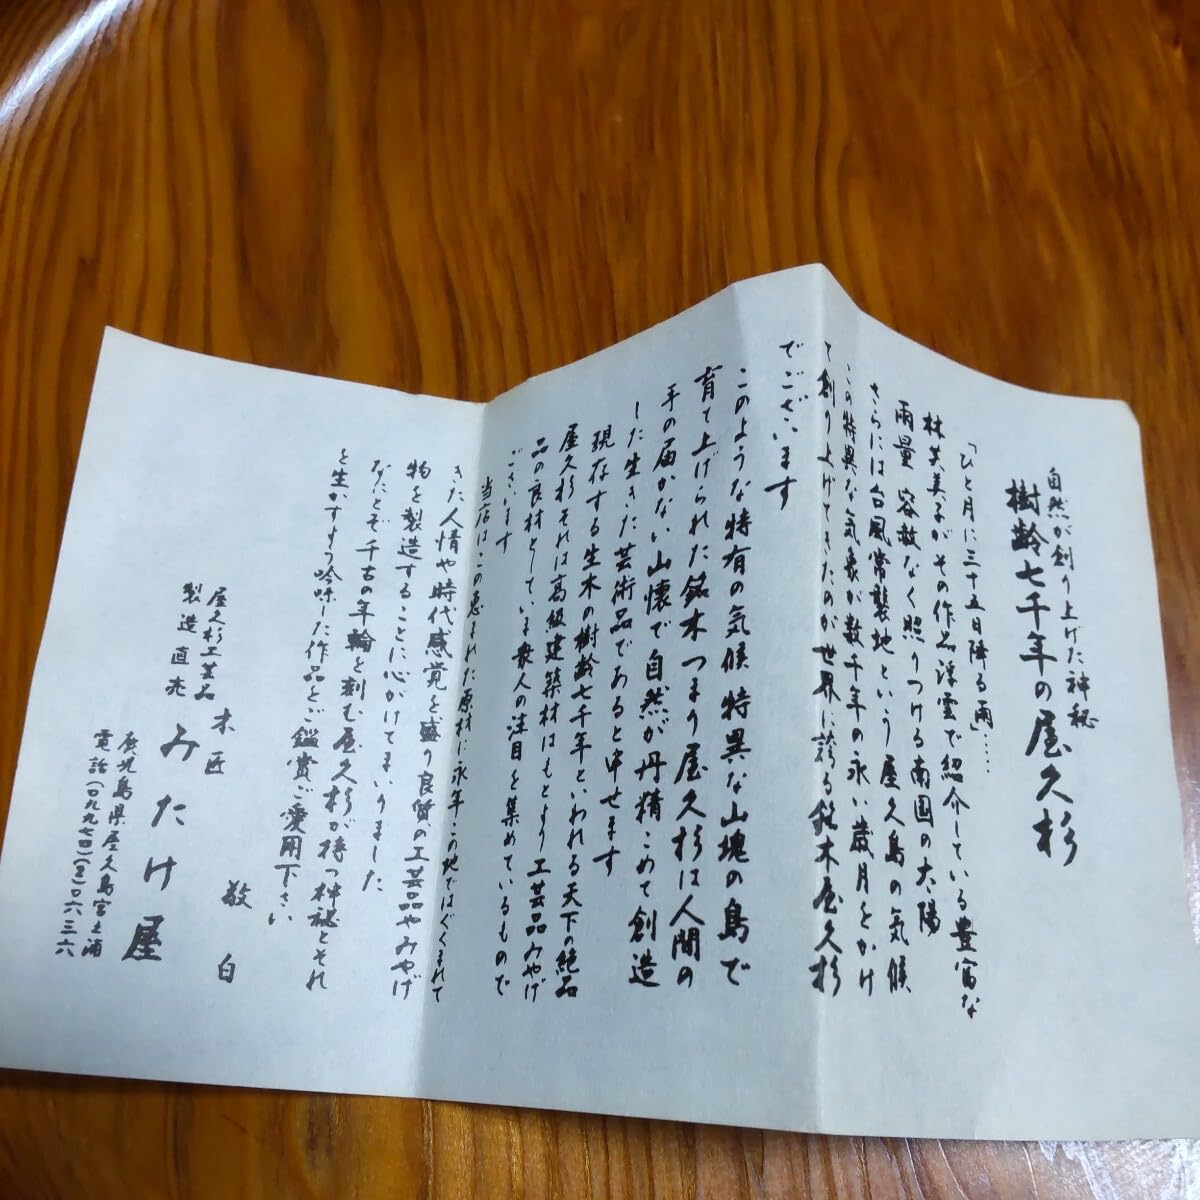 自然が創り上げた神秘
樹齢七千年の屋久杉
「ひと月に三十五日降る雨」……
林芙美子がその作品浮雲で紹介している豊富な
雨量 容赦なく照りつける南国の太陽
さらには台風常襲地という屋久島の気候
この特異な気象が数千年の永い歳月をかけ
て創り上げてきたのが世界に誇る銘木屋久杉
でございます
このような特有の気候特異な山塊の島で
育て上げられた銘木つまり屋久杉は人間の
手の届かない山懐で自然が丹精こめて創造
した生きた芸術品であると申せます
現存する生木の樹齢七千年といわれる天下の絶品
屋久杉それは高級建築材はもとより工芸品みやげ
品の良材としていま衆人の注目を集めているもので
ございます
当店はこの恵まれた原材に永年この地ではぐくまれて
きた人情や時代感覚を盛り良質の工芸品やみやげ
物を製造することに心がけてまいりました
なにとぞ千古の年輪を刻む屋久杉が持つ神秘とそれ
を生かすよう吟味した作品をご鑑賞ご愛用下さい
敬白
屋久杉工芸品 木匠
製造直売 みたけ屋
鹿児島県屋久島宮之浦
電話(〇九九七四)(2)〇六三六